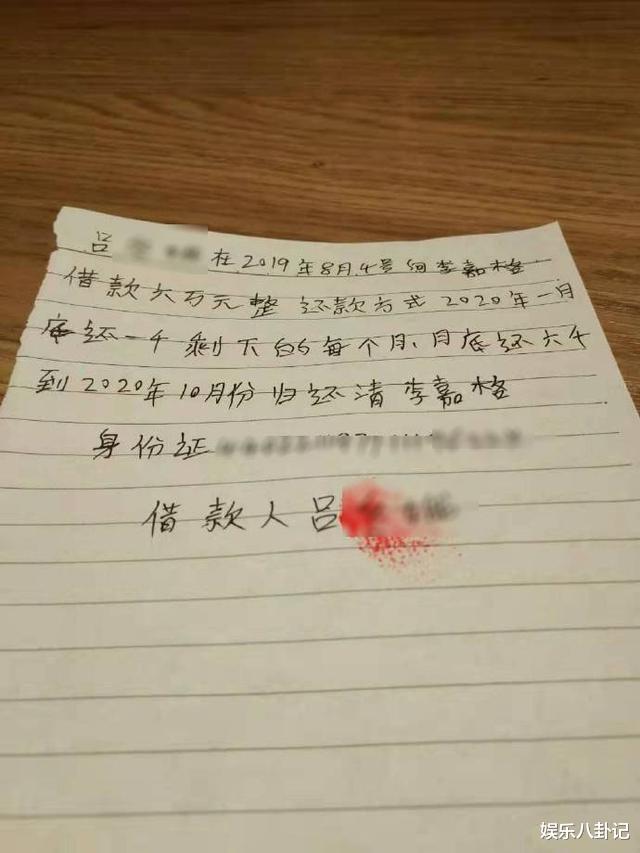 吕 在2019年8月4号向李嘉格
借款六万元整 还款方式 2020年一月
底还一千 剩下的每个月月底还六千
到2020年10月份归还清李嘉格
身份证
借款人吕
娱乐八卦记